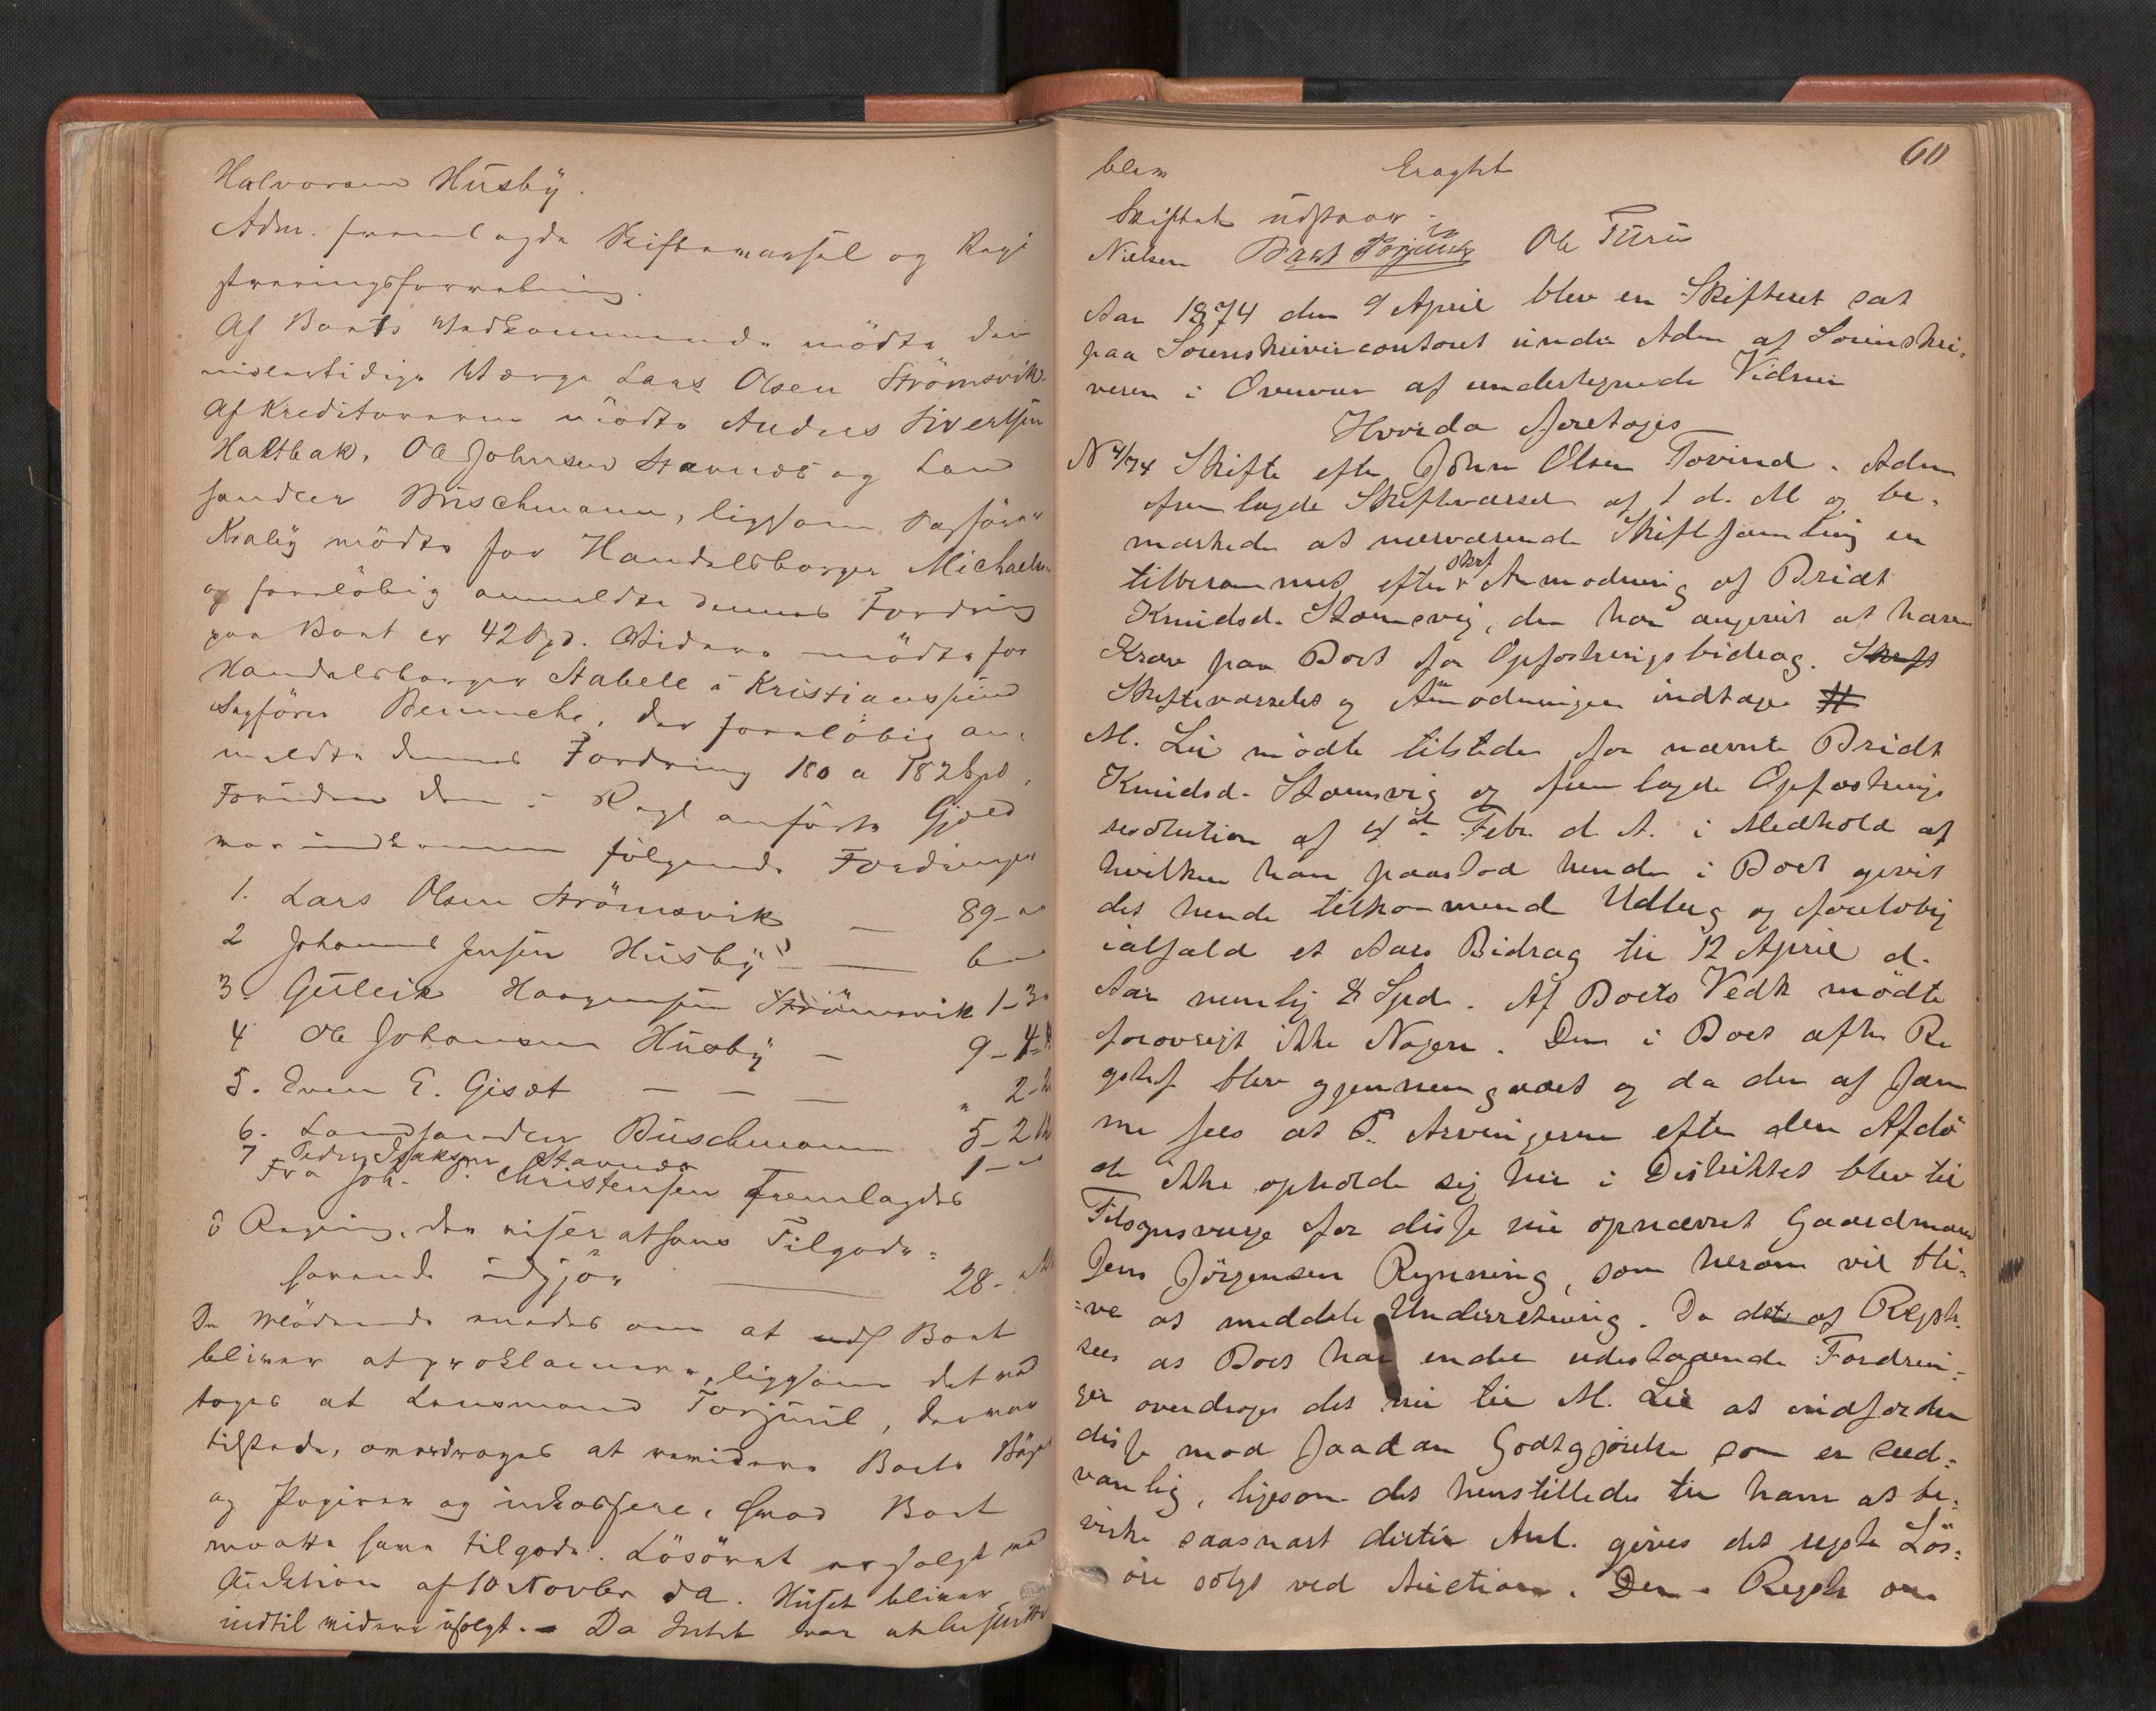 Halvorsen Husby.
Adm. fremlagde Skiftevarsel og Regi
streringsforretning.
Af Boets Vedkommende mødte den
midlertidige Værge Lars Olsen Strömsvik.
Af Kreditorerne mödte Anders Sivertsen
Haltbak, Ole Johnsen Stavnes og Lan
handler Buschmann, ligesom Sagförer
Kraby mödte for Handelsborger Michaelsen
og foreløbig anmeldte dennes Fordring
paa Boet er 42 Spd. Videre mödte for
Handelsborger Stabell i Kristianssund
Sagförer Benneche, der foreløbig an-
meldte dennes Fordring 180 a 182 Spd.
Foruden den i Regl anförte Gjæld
var indkommen følgende Fordringer
1. Lars Olsen Strömsvik — 89-
2 Johannes Jensen Husby — 6
3. Gulleik Haagensen Strömsvik 1-3
4 Ole Johansen Husby — 9-4-
5. Even E. Gisöt — — — " 2-2
6. Landhandler Buschmann 5-2
7 Peder Isaksen Stavnes 1-
Fra Joh. P. Christensen Fremlagdes
Regning, der viser at hans Tilgode-
havende udgjör — 28-
De Mödende enedes om at Boet
bliver at proklamere, ligesom det ved
toges at Lensmand Torjuul, der var
tilstede, overdroges at revidere Boets Böger
og Papirer og inkassere, hvad Boet
maatte have tilgode. Lösöret er solgt ved
Auktion af 10 Novbr d A. Huset bliver
indtil videre usolgt. - Da Intet var at
blev Eragtet
Skiftet udstaar.
Nielsen Ole Furu
Aar 1874 den 9 April blev en Skifteret sat
paa Sorenskrivercontoret under Adm af Sorenskri-
veren i Overvær af undertegnede Vidner
Hvorda foretoges
N 4/74 Skifte efter John Olsen Tovind. Adm
fremlagde Skiftevarsel af 1 d. M og be-
mærkede at nærværende Skiftesamling er
tilberammet efter skrf Anmodning af Bridt
Knudsd. Stomsvig, der har angivet at have
Krav paa Boet for Opfostringsbidrag. Skrft
Skiftevarselet og Anmodningen indtages #
M. Lie mödte tilstede for nævnte Bridt
Knudsd. Stomsvig og fremlagde Opfostrings
resolution af 4de Febr. d A. i Medhold af
hvilken han paastod hende i Boet givet
det hende tilkommend Udlæg og foreløbig
ialfald et Aars Bidrag til 12 April d.
Aar nemlig 8 Spd. Af Boets Vedk mödte
forövrigt ikke Nogen. Den i Boet afh. Re
gstrf blev gjennemgaaet og da den af sam
me sees at Arvingerne efter den Afdö
de ikke opholde sig her i Distriktet blev til
Tilsynsværge for disse nu opnævnt Gaardmand
Jens Jörgensen Rynning, som herom vil bli-
=ve at meddele Underretning. Da det af Regstr.
sees at Boet har endel udestaaende Fordrin-
ger overdroges det nu til M. Lie at indfordre
disse mod saadan Godtgjörelse som er sæd-
vanlig, ligesom det henstilledes til ham at be-
virke saasnart dertil Anl. gives det regstr Lös-
öre solgt ved Auction. Den i Regstr om
60